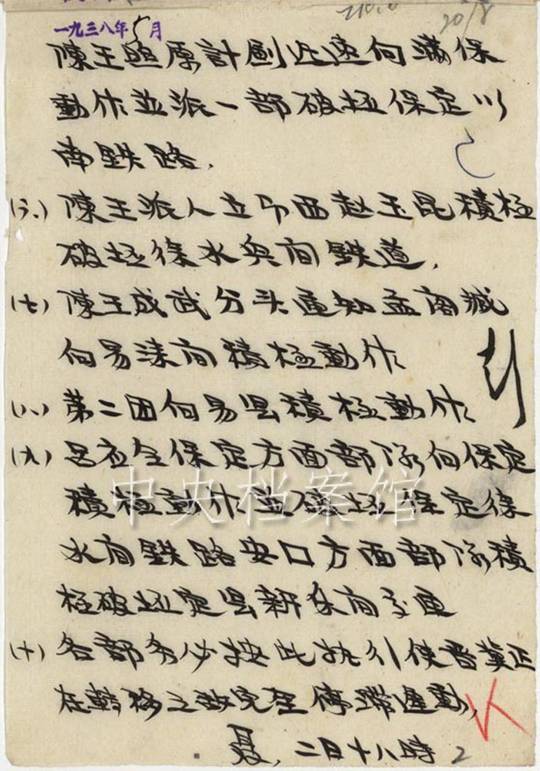 一九三八年5月
20/8
陳王照原計劃迅速向滿保
動作並派一部破極保定以
南鉄路.
(六) 陳王派人立即西赵玉昆積極
破坏徐水與间鉄道.
(七) 陳王成武分头通知孟阁臧
向易涞间積極動作
(八) 第二团向易县積極動作
(九) 吕在全保定方面部隊向保定
積極動作並破坏保定徐
水间鉄路安口方面部隊積
極破坏定县新乐间交通
(十) 各部务必按此执行使晋冀正
在轉移之敌完全停滞運動,
聂. 二日十八時
2
中央档案馆